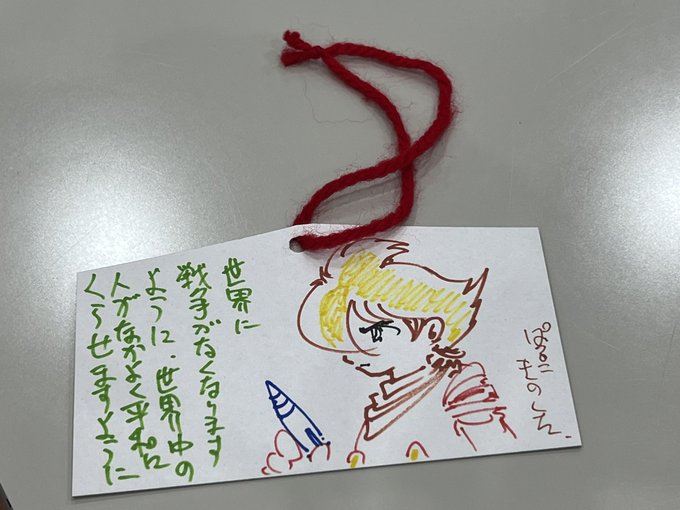 世界に
戦争がなくなります
ように・世界中の
人がなかよく平和に
くらせますように
ぱるこ
きのした.